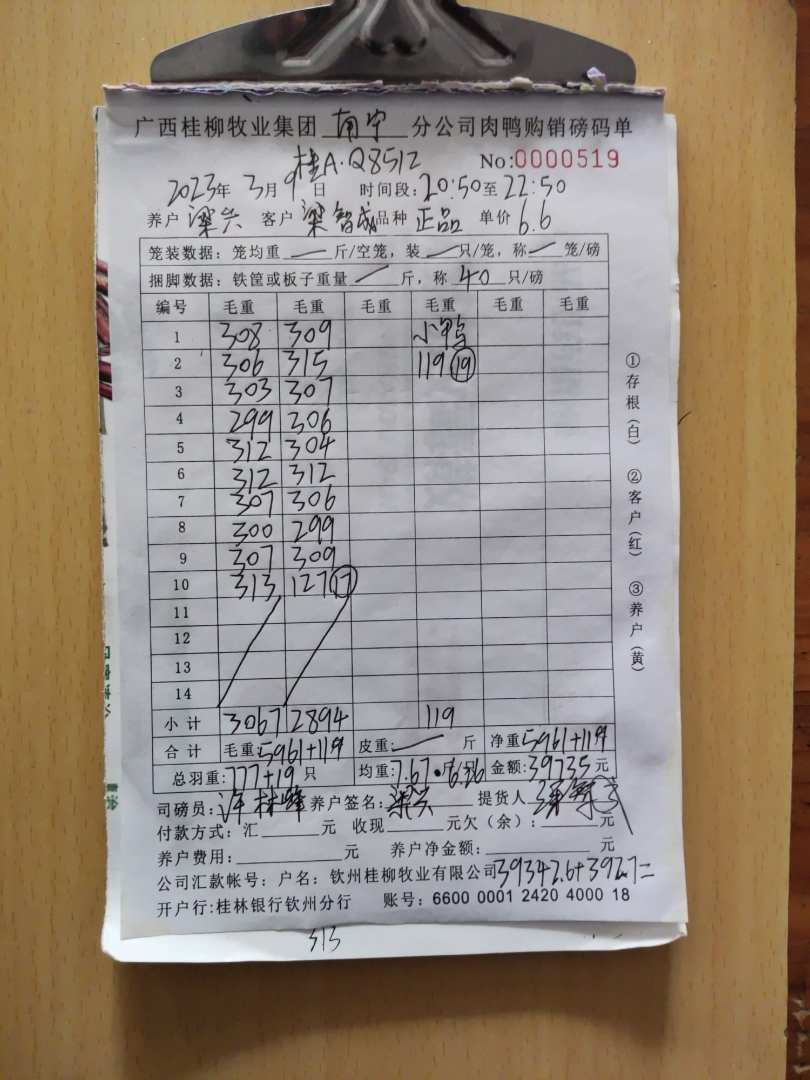 广西桂柳牧业集团 南宁 分公司肉鸭购销磅码单
桂A·Q8512 No:0000519
2023年 3月 9日 时间段:20:50至22:50
养户 梁兴 客户 梁智成 品种 正品 单价 6.6
笼装数据:笼均重 — 斤/空笼,装 — 只/笼,称 — 笼/磅
捆脚数据:铁筐或板子重量 — 斤,称 40 只/磅
编号 毛重 毛重 毛重 毛重 毛重 毛重
1 308 309 小鸭
2 306 315 119 ⑲
3 303 307
4 299 306
5 312 304
6 312 312
7 307 306
8 300 299
9 307 309
10 313 127 ⑰
11
12
13
14
小计 3067 2894 119
合计 毛重:5961+119 皮重: — 斤 净重5961+119
总羽重:777+19 只 均重:7.67·6.26 金额:39735元
司磅员:许林峰 养户签名:梁兴 提货人
付款方式:汇 元 收现 元欠(余): 元
养户费用: 元 养户净金额: 元
公司汇款帐号:户名:钦州桂柳牧业有限公司 39342.6+392.7=
开户行:桂林银行钦州分行 账号:6600 0001 2420 4000 18
313
①存根(白) ②客户(红) ③养户(黄)